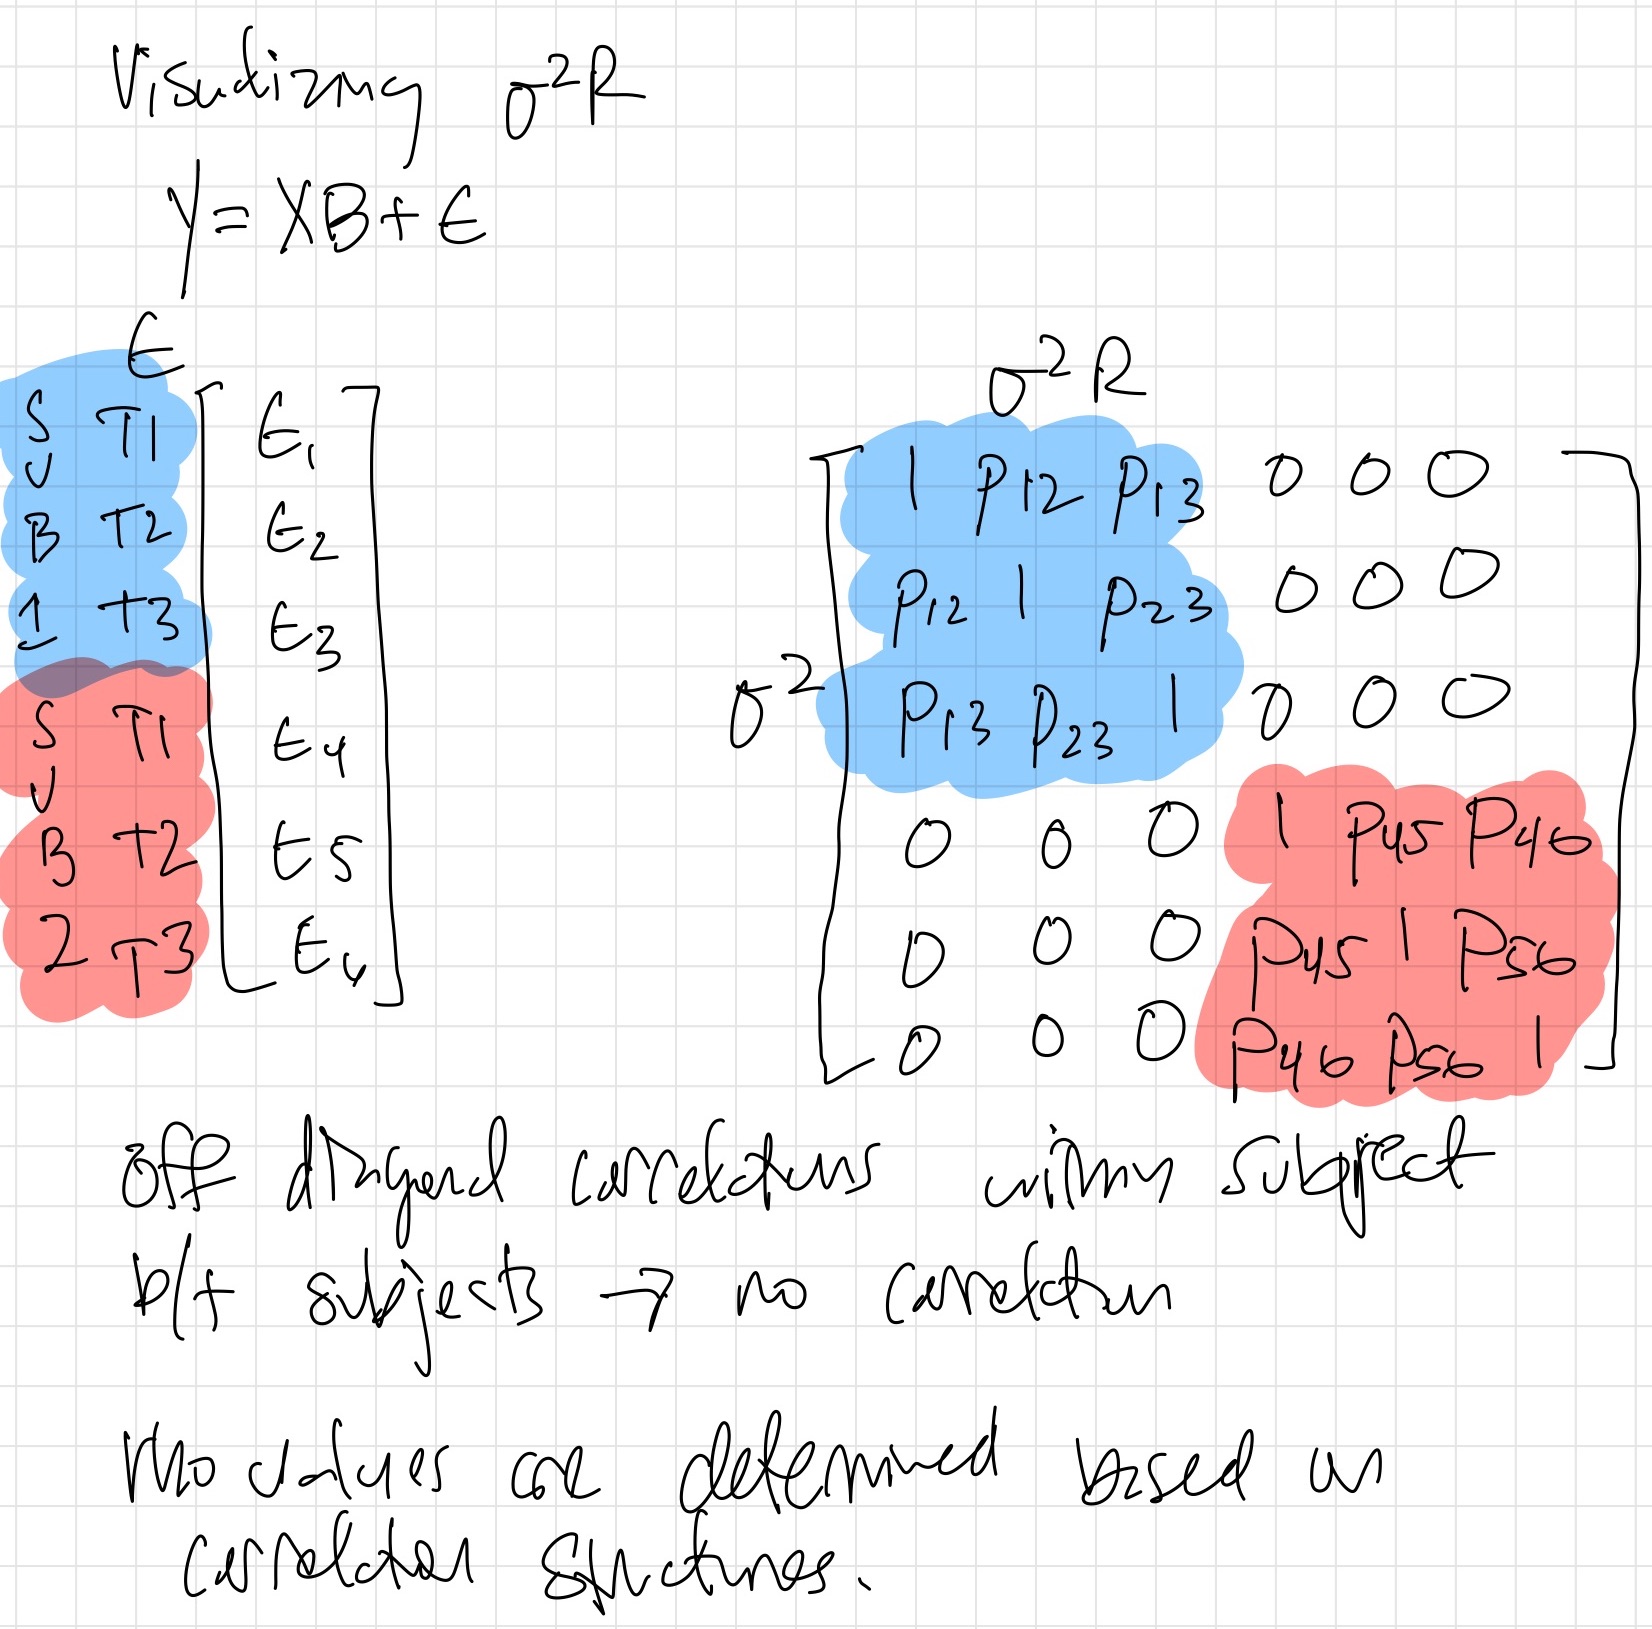 Visualizing σ²R
Y = XB + ϵ
ϵ
σ²R
SUB 1
T1 ϵ₁
T2 ϵ₂
T3 ϵ₃
SUB 2
T1 ϵ₄
T2 ϵ₅
T3 ϵ₆
σ²
1 ρ12 ρ13 0 0 0
ρ12 1 ρ23 0 0 0
ρ13 ρ23 1 0 0 0
0 0 0 1 ρ45 ρ46
0 0 0 ρ45 1 ρ56
0 0 0 ρ46 ρ56 1
off diagonal correlations within subject
b/t subjects → no correlation
rho values are determined based on
correlation structures.